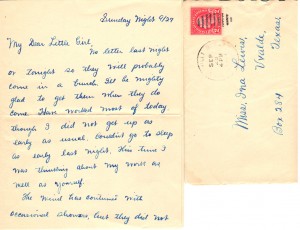 Sunday Night 9/29
My Dear Little Girl.
No letter last night
or tonight so they will probably
come in a bunch. I'll be mighty
glad to get them when they do
come. Have worked most of today
though I did not get up as
early as usual. Couldn't go to sleep
as early last night. This time I
was thinking about my work as
well as yourself.
The wind has continued with
occasional showers, but they did not
SEP
Miss. Ina Lewis,
Uvalde,
Texas.
Box 284